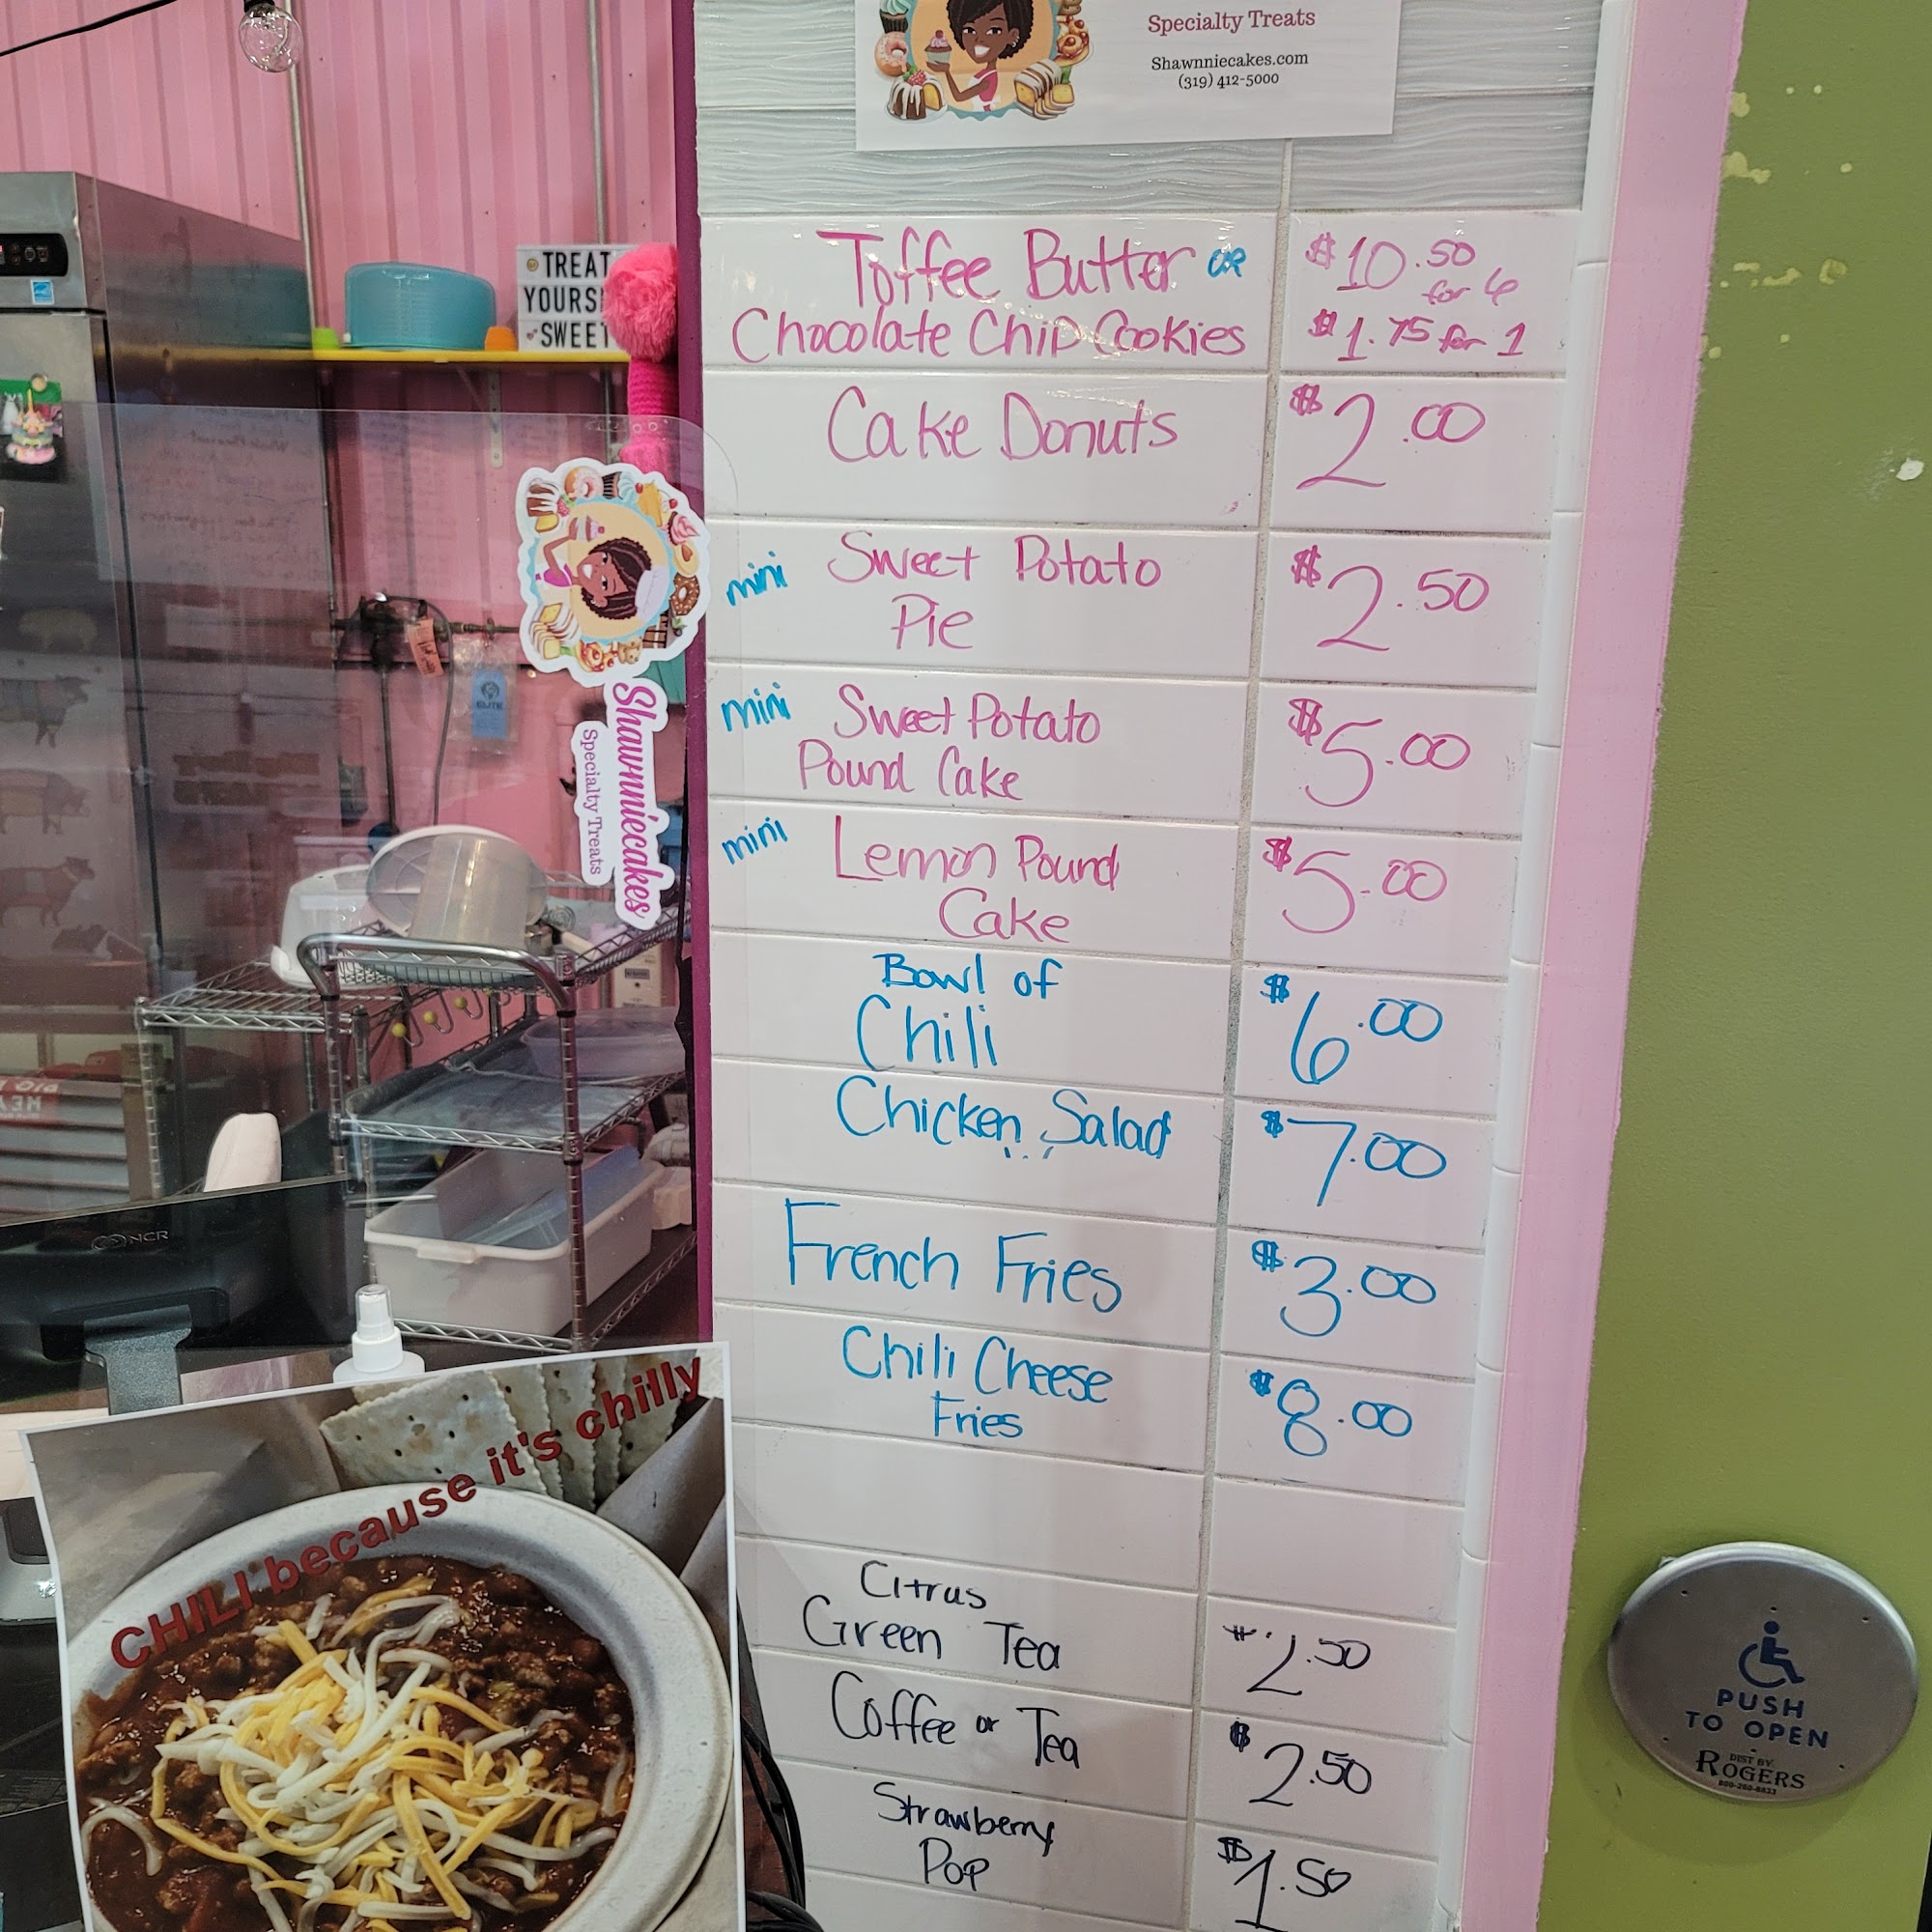 Specialty Treats
Shawnniecakes.com
(319) 412-5000
TREAT
YOURS
SWEET
Toffee Butter OR
Chocolate Chip Cookies
$10.50
for 6
$1.75 for 1
Cake Donuts
$2.00
mini Sweet Potato
Pie
$2.50
mini Sweet Potato
Pound Cake
$5.00
mini Lemon Pound
Cake
$5.00
Bowl of
Chili
$6.00
Chicken Salad
$7.00
French Fries
$3.00
Chili Cheese
Fries
$8.00
Citrus
Green Tea
$2.50
Coffee or Tea
$2.50
Strawberry
Pop
$1.50
Shawnniecakes
Specialty Treats
NCR
CHILI because it's chilly
PUSH
TO OPEN
DIST BY.
ROGERS
800-260-8833